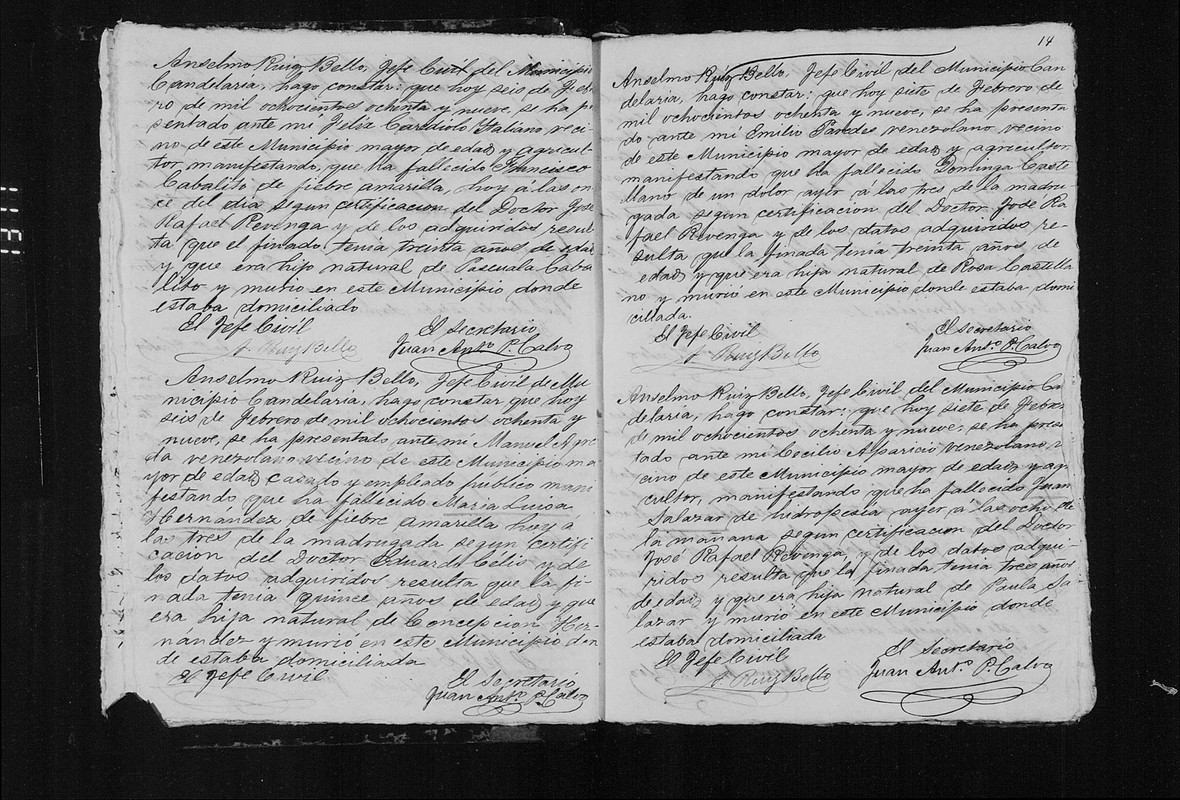 Anselmo Ruiz Bello, Jefe Civil del Municipio
Candelaria, hago constar: que hoy seis de Febre
ro de mil ochocientos ochenta y nueve, se ha p
sentado ante mí Felix Italiano veci
no de este Municipio mayor de edad y agricul
tor manifestando, que ha fallecido Francisco
Cabalito de fiebre amarilla, hoy á las on
ce del dia segun certificacion del Doctor José
Rafael Revenga y de los adquiridos resul
ta que el finado tenia treinta años de edad
y que era hijo natural de Pascuala Caba
lito y murio en este Municipio donde
estaba domiciliado
El Jefe Civil El Secretario
A. Ruiz Bello Juan Anto. P. Calvo
Anselmo Ruiz Bello, Jefe Civil de Mu
nicipio Candelaria, hago constar que hoy
seis de Febrero de mil ochocientos ochenta y
nueve, se ha presentado ante mi Manuel
da venezolano vecino de este Municipio ma
yor de edad casado y empleado publico mani
festando que ha fallecido Maria Luisa
Hernández de fiebre amarilla hoy á
las tres de la madrugada segun certifi
cacion del Doctor Eduardo Celis y de
los datos adquiridos resulta que la fi-
nada tenia quince años de edad y que
era hija natural de Concepcion Her
nandez y murió en este Municipio don
de estaba domiciliada
El Jefe Civil El Secretario
Juan Anto. P. Calvo
14
Anselmo Ruiz Bello, Jefe Civil del Municipio Can
delaria, hago constar: que hoy siete de Febrero de
mil ochocientos ochenta y nueve, se ha presenta
do ante mi Emilio Paredes venezolano vecino
de este Municipio mayor de edad y agricultor
manifestando que ha fallecido Dominga Caste
llano de un dolor ayer á las tres de la madru
gada segun certificacion del Doctor José Ra
fael Revenga y de los datos adquiridos re-
sulta que la finada tenia treinta años de
edad y que era hija natural de Rosa Castella
no y murió en este Municipio donde estaba domi
ciliada.
El Jefe Civil El Secretario
A. Ruiz Bello Juan Anto. P. Calvo
Anselmo Ruiz Bello, Jefe Civil del Municipio Ca
delaria, hago constar: que hoy siete de Febrer
de mil ochocientos ochenta y nueve, se ha presen
tado ante mi Cecilio Aparicio venezolano v
cino de este Municipio mayor de edad y agri
cultor, manifestando que ha fallecido Juan
Salazar de hidropesia ayer á las ocho de
la mañana segun certificacion del Doctor
José Rafael Revenga y de los datos adqui-
ridos resulta que la finada tenia tres años
de edad y que era hija natural de Paula Sa-
lazar y murió en este Municipio donde
estabal domiciliada
El Jefe Civil El Secretario
A. Ruiz Bello Juan Anto. P. Calvo